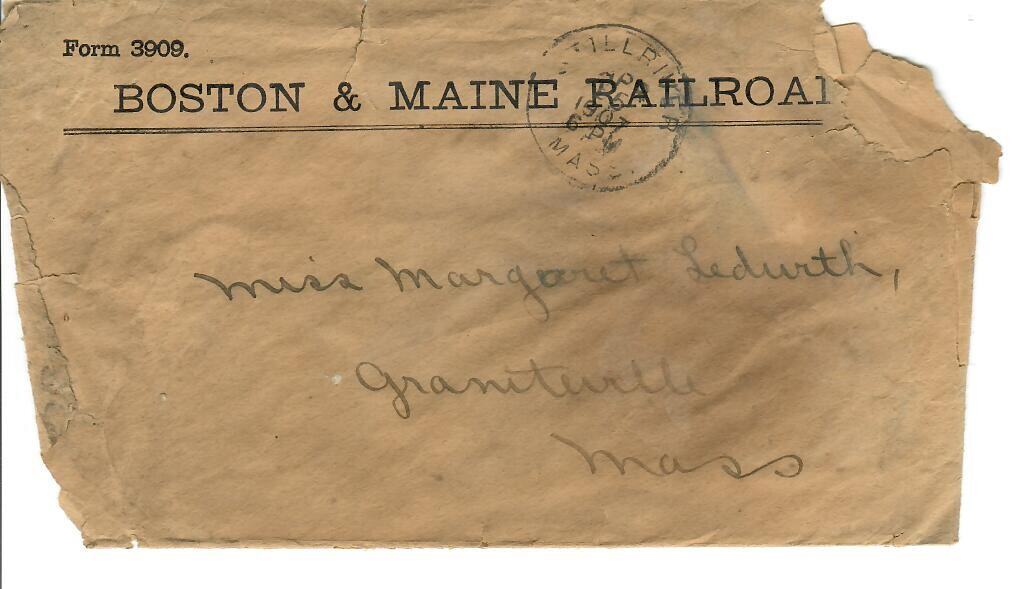 Form 3909.
BOSTON & MAINE RAILROA
STILLRIVER
1907
6 PM
MASS.
Miss Margaret Ledwith,
Graniteville
Mass